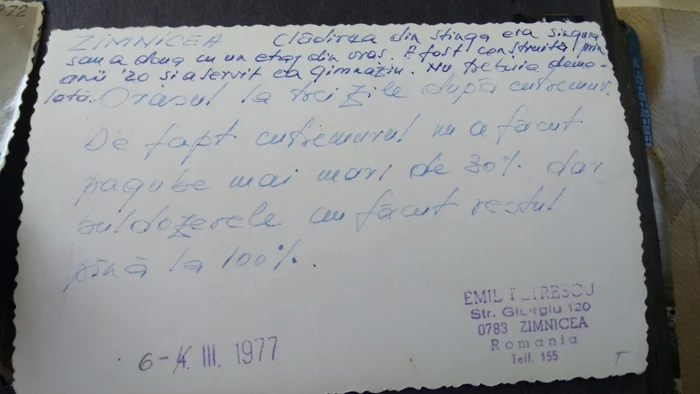 ZIMNICEA Clădirea din stînga era singura
sau a doua cu un etaj din oraș. A fost construită prin
anii '20 și a servit ca gimnaziu. Nu trebuia demo-
lată. Orașul la trei zile după cutremur.
De fapt cutremurul nu a făcut
pagube mai mari de 30% dar
buldozerele au făcut restul
pînă la 100%.
EMIL PETRESCU
Str. Giurgiu 120
0783 ZIMNICEA
Romania
Telf. 155
6-4. III. 1977
T
1972